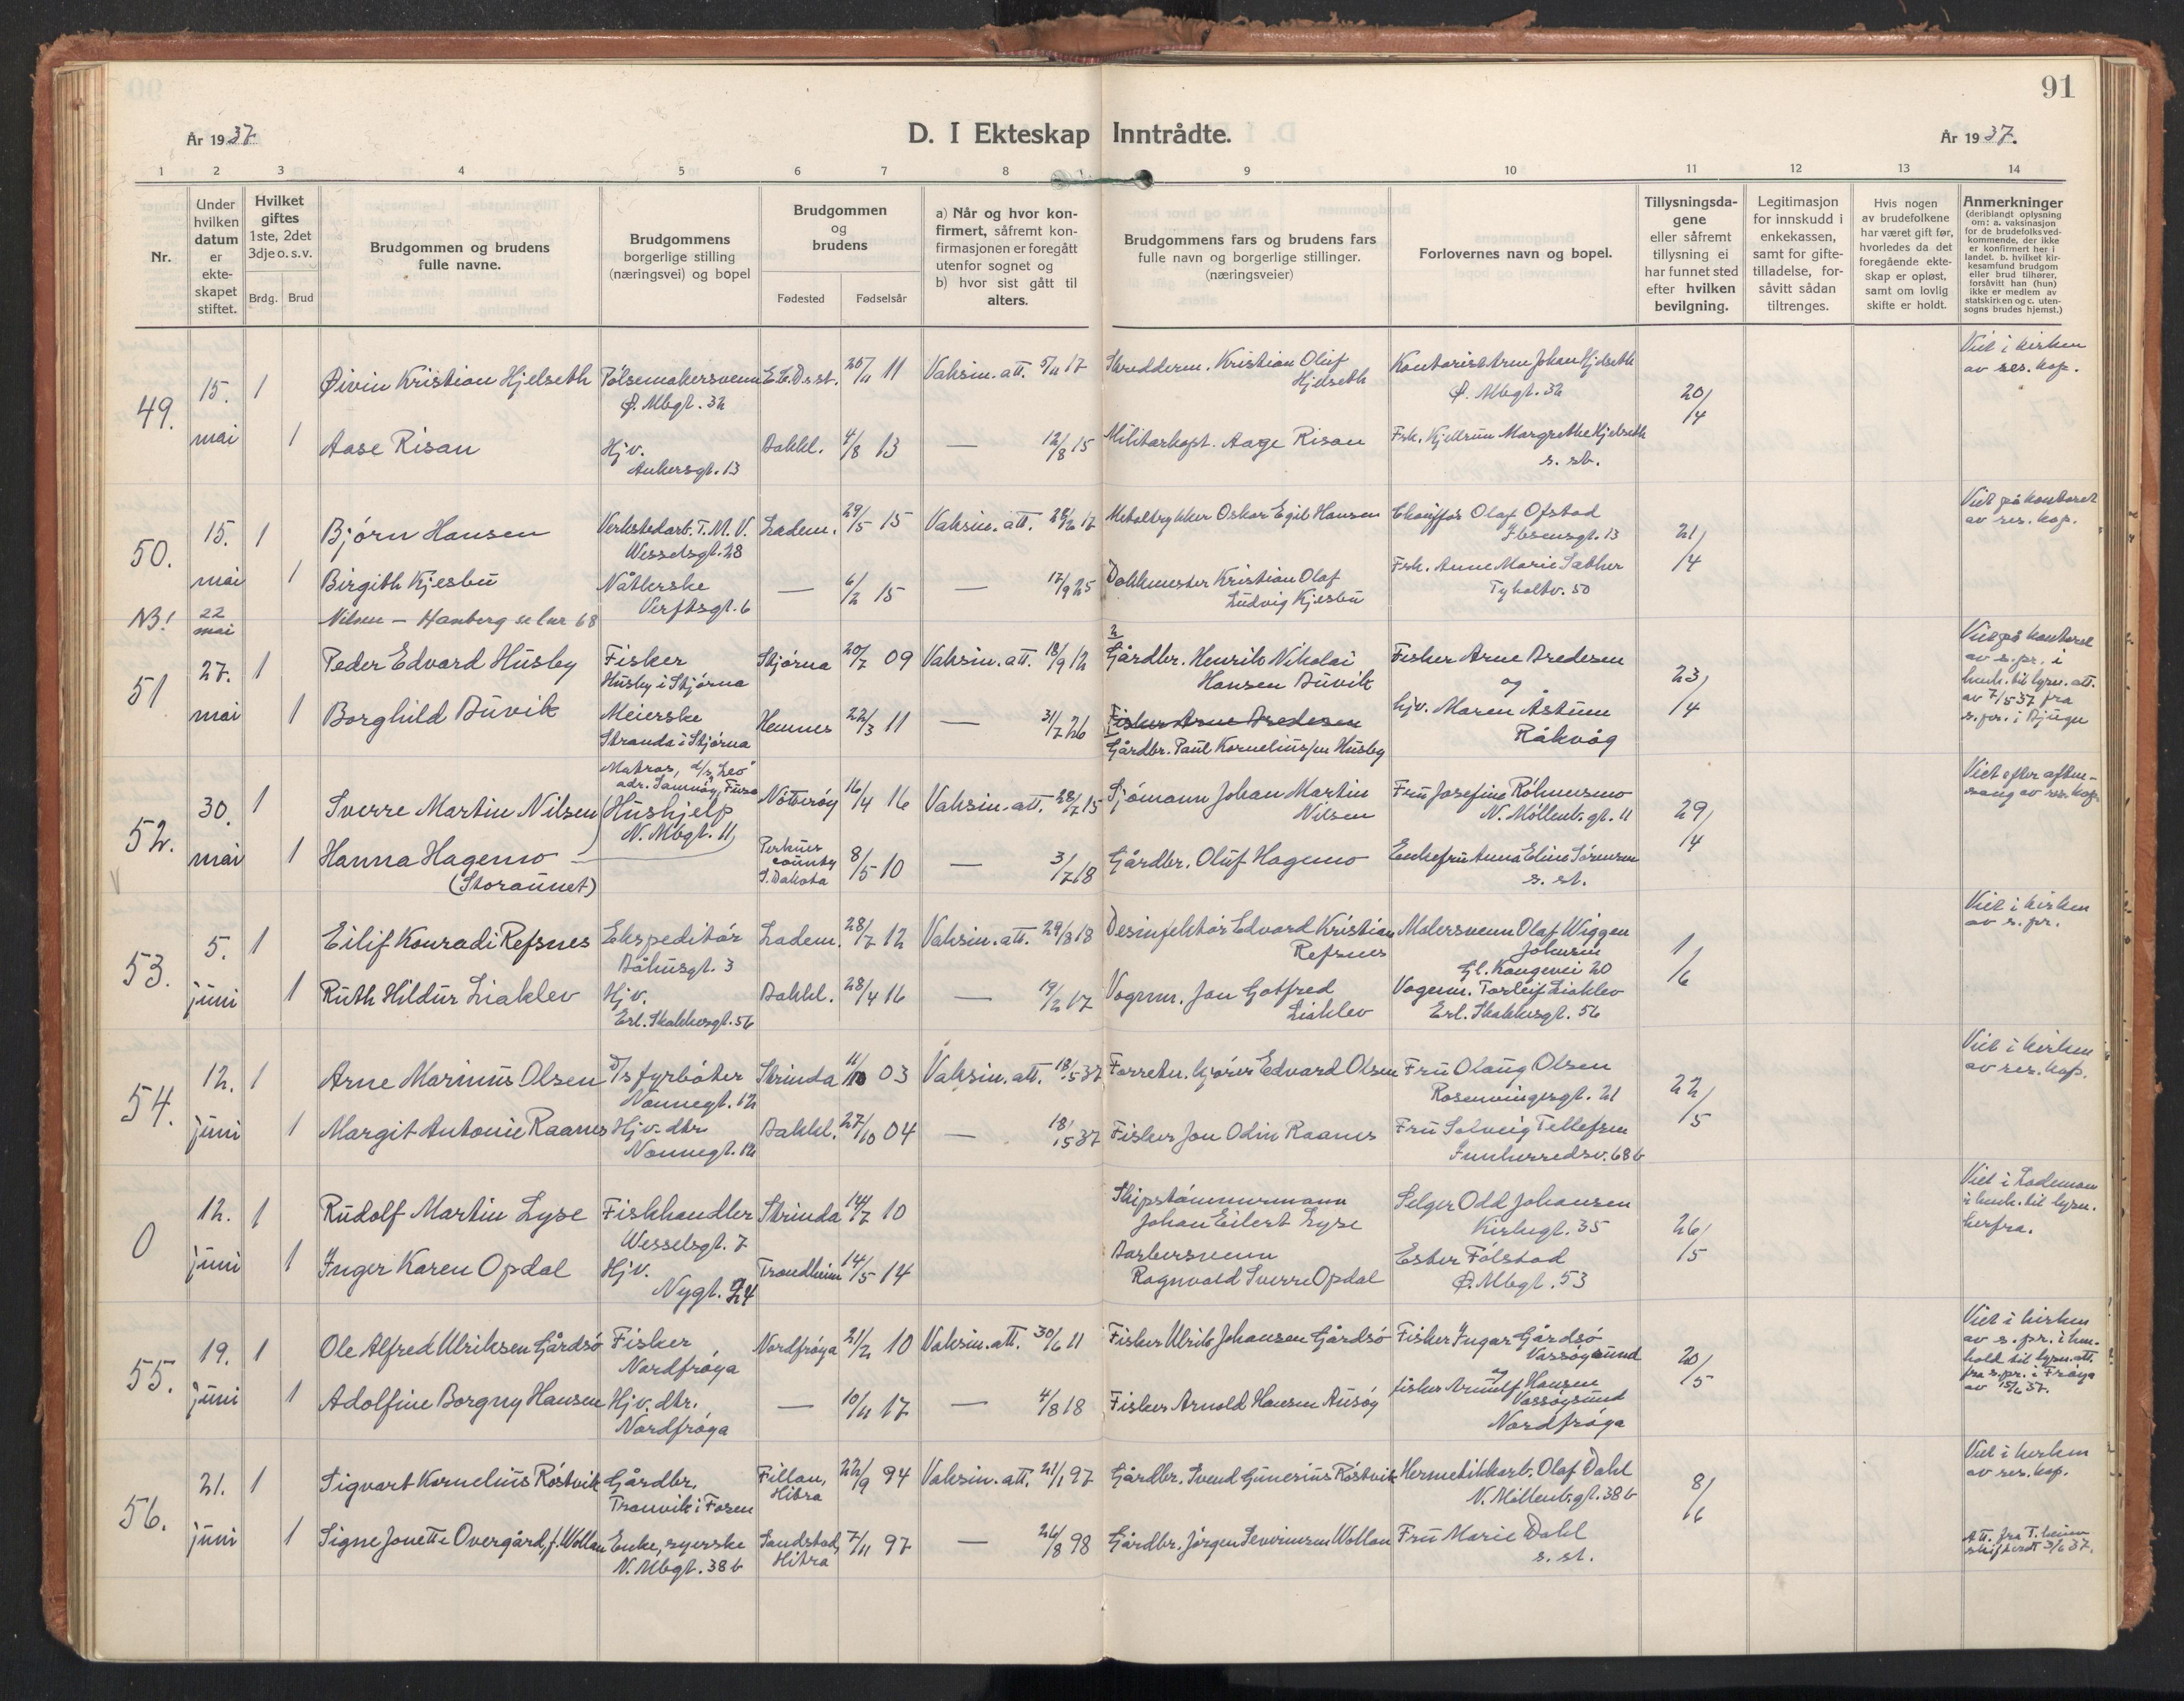 91
År 1937.
D. I Ekteskap Inntrådte.
År 1937.
1 2 3 4 5 6 7 8 9 10 11 12 13 14
Nr.
Under hvilken datum er ekteskapet stiftet.
Hvilket giftes 1ste, 2det 3dje o. s. v.
Brdg. Brud
Brudgommen og brudens fulle navne.
Brudgommens borgerlige stilling (næringsvei) og bopel
Brudgommen og brudens
Fødested Fødselsår
a) Når og hvor konfirmert, såfremt konfirmasjonen er foregått utenfor sognet og
b) hvor sist gått til alters.
Brudgommens fars og brudens fars fulle navn og borgerlige stillinger. (næringsveier)
Forlovernes navn og bopel.
Tillysningsdagene eller såfremt tillysning ei har funnet sted efter hvilken bevilgning.
Legitimasjon for innskudd i enkekassen, samt for giftetilladelse, forsåvitt sådan tiltrenges.
Hvis nogen av brudefolkene har været gift før, hvorledes da det foregående ekteskap er opløst, samt om lovlig skifte er holdt.
Anmerkninger (deriblandt oplysning om: a. vaksinasjon for de brudefolk vedkommende, der ikke er konfirmert her i landet. b. hvilket kirkesamfund brudgom eller brud tilhører, forsåvitt han (hun) ikke er medlem av statskirken og c. utensogns brudes hjemst.)
49. 15. mai 1 Øivin Kristian Hjelseth Pølsemakersvenn Ø. Mbgt. 32 E.C.D.s st. 25/11 11 Vaksin. att. 5/11 17 Skredderm. Kristian Oluf Hjelseth Kontorist Arne Johan Hjelseth Ø. Mbgt. 32 20/4 Viet i kirken av res. kap.
1 Aase Risan Hjv. Ankersgt. 13 Bakkl. 4/8 13 — 12/8 15 Militærkapt. Aage Risan Frk. Kjellrun Margrethe Hjelseth s. st.
50. 15. mai 1 Bjørn Hansen Verkstedarb. T.M.V. Wesselsgt. 28 Ladem. 29/5 15 Vaksin. att. 28/6 17 Metaltrykker Oskar Egil Hansen Chauffør Olaf Ofstad Ibsensgt. 13 21/4 Viet på kontoret av res. kap.
1 Birgith Kjesbu Nåtlerske Verftsgt. 6 — 6/2 15 — 17/9 25 Dokkmester Kristian Olaf Ludvig Kjesbu Frk. Anne Marie Sæther Tyholtv. 50
NB! 22 mai Nilsen — Hanberg se lnr 68
51 27. mai 1 Peder Edvard Husby Fisker Husby i Stjørna Stjørna 20/7 09 Vaksin. att. 18/9 12 2 Gårdbr. Henrik Nikolai Hansen Buvik Fisker Arne Bredesen og 23/4 Viet på kontoret av s. pr. i henh. til lysn. att. av 7/5 37 fra s. pr. i Bjugn
1 Borghild Buvik Meierske Stranda i Stjørna Hemnes 22/3 11 — 31/7 26 Fisker Arne Bredesen Gårdbr. Paul Kornelius/en Husby hjv. Maren Åstum Råkvåg
52. 30. mai 1 Sverre Martin Nilsen Matros, d/s "Leo" adr. Nøtterøy 16/4 16 Vaksin. att. 28/7 15 Sjømann Johan Martin Nilsen Fru Josefine Røhmesmo N. Møllenb. gt. 11 29/4 Viet efter aftensang av res. kap.
1 Hanna Hagemo (Storaunet) Hushjelp N. Mbgt. 11 Perkins county S. Dakota 8/5 10 — 3/7 18 Gårdbr. Oluf Hagemo Enkefru Anna Eline Sørensen s. st.
53. 5. juni 1 Eilif Konradi Refsnes Ekspeditør Båhusgt. 3 Ladem. 28/7 12 Vaksin. att. 29/8 18 Desinfektør Edvard Kristian Refsnes Malersvenn Olaf Wiggen Johnsen Gl. Kongevei 20 1/6 Viet i kirken av s. pr.
1 Ruth Hildur Liaklev Hjv. Erl. Skakkesgt. 56 Bakkl. 28/4 16 — 19/2 17 Vognm. Jon Gotfred Liaklev Vognm. Torleif Liaklev Erl. Skakkesgt. 56
54. 12. juni 1 Arne Marinus Olsen D/s fyrbøter Nonnegt. 12 Strinda 11/10 03 Vaksin. att. 18/5 37 Forretn. kjører Edvard Olsen Fru Olaug Olsen Rosenvingesgt. 21 22/5 Viet i kirken av res. kap.
1 Margit Antonie Raanes Hjv. dtr. Nonnegt. 12 Bakkl. 27/10 04 — 18/5 37 Fisker Jon Odin Raanes Fru Solveig Tellefsen Innherredsv. 68 b
0 12. juni 1 Rudolf Martin Lyse Fiskhandler Wesselsgt. 7 Strinda 14/7 10 Skipstømmermann Johan Eilert Lyse Selger Odd Johansen Kirkegt. 35 26/5 Viet i Lademoen i henh. til lysn. herfra.
1 Inger Karen Opdal Hjv. Nygt. 24 Trondheim 14/5 14 Barbersvenn Ragnvald Sverre Opdal Ester Følstad Ø. Mbgt. 53
55. 19. juni 1 Ole Alfred Ulriksen Gårdsø Fisker Nordfrøya Nordfrøya 21/2 10 Vaksin. att. 30/6 11 Fisker Ulrik Johansen Gårdsø Fisker Ingar Gårdsø Vassøysund og 20/5 Viet i kirken av s. pr. i henhold til lysn. att. fra s. pr. i Frøya av 15/6 37.
1 Adolfine Borgny Hansen Hjv. dtr. Nordfrøya — 10/11 17 — 4/8 18 Fisker Arnold Hansen Ausøy fisker Arnulf Hansen Vassøysund Nordfrøya
56. 21. juni 1 Sigvart Kornelius Røstvik Gårdbr. Tranvik i Fosen Fillan, Hitra 22/9 94 Vaksin. att. 21/1 97 Gårdbr. Svend Gunerius Røstvik Hermetikkarb. Olaf Dahl N. Møllenb. gt. 38 b 8/6 Viet i kirken av res. kap.
1 Signe Jonette Overgård, f. Wollan Enke, syerske N. Mbgt. 38 b Sandstad, Hitra 7/11 97 — 26/8 98 Gårdbr. Jørgen Severinsen Wollan Fru Marie Dahl s. st. Att. fra T.heim skifterett 3/6 37.